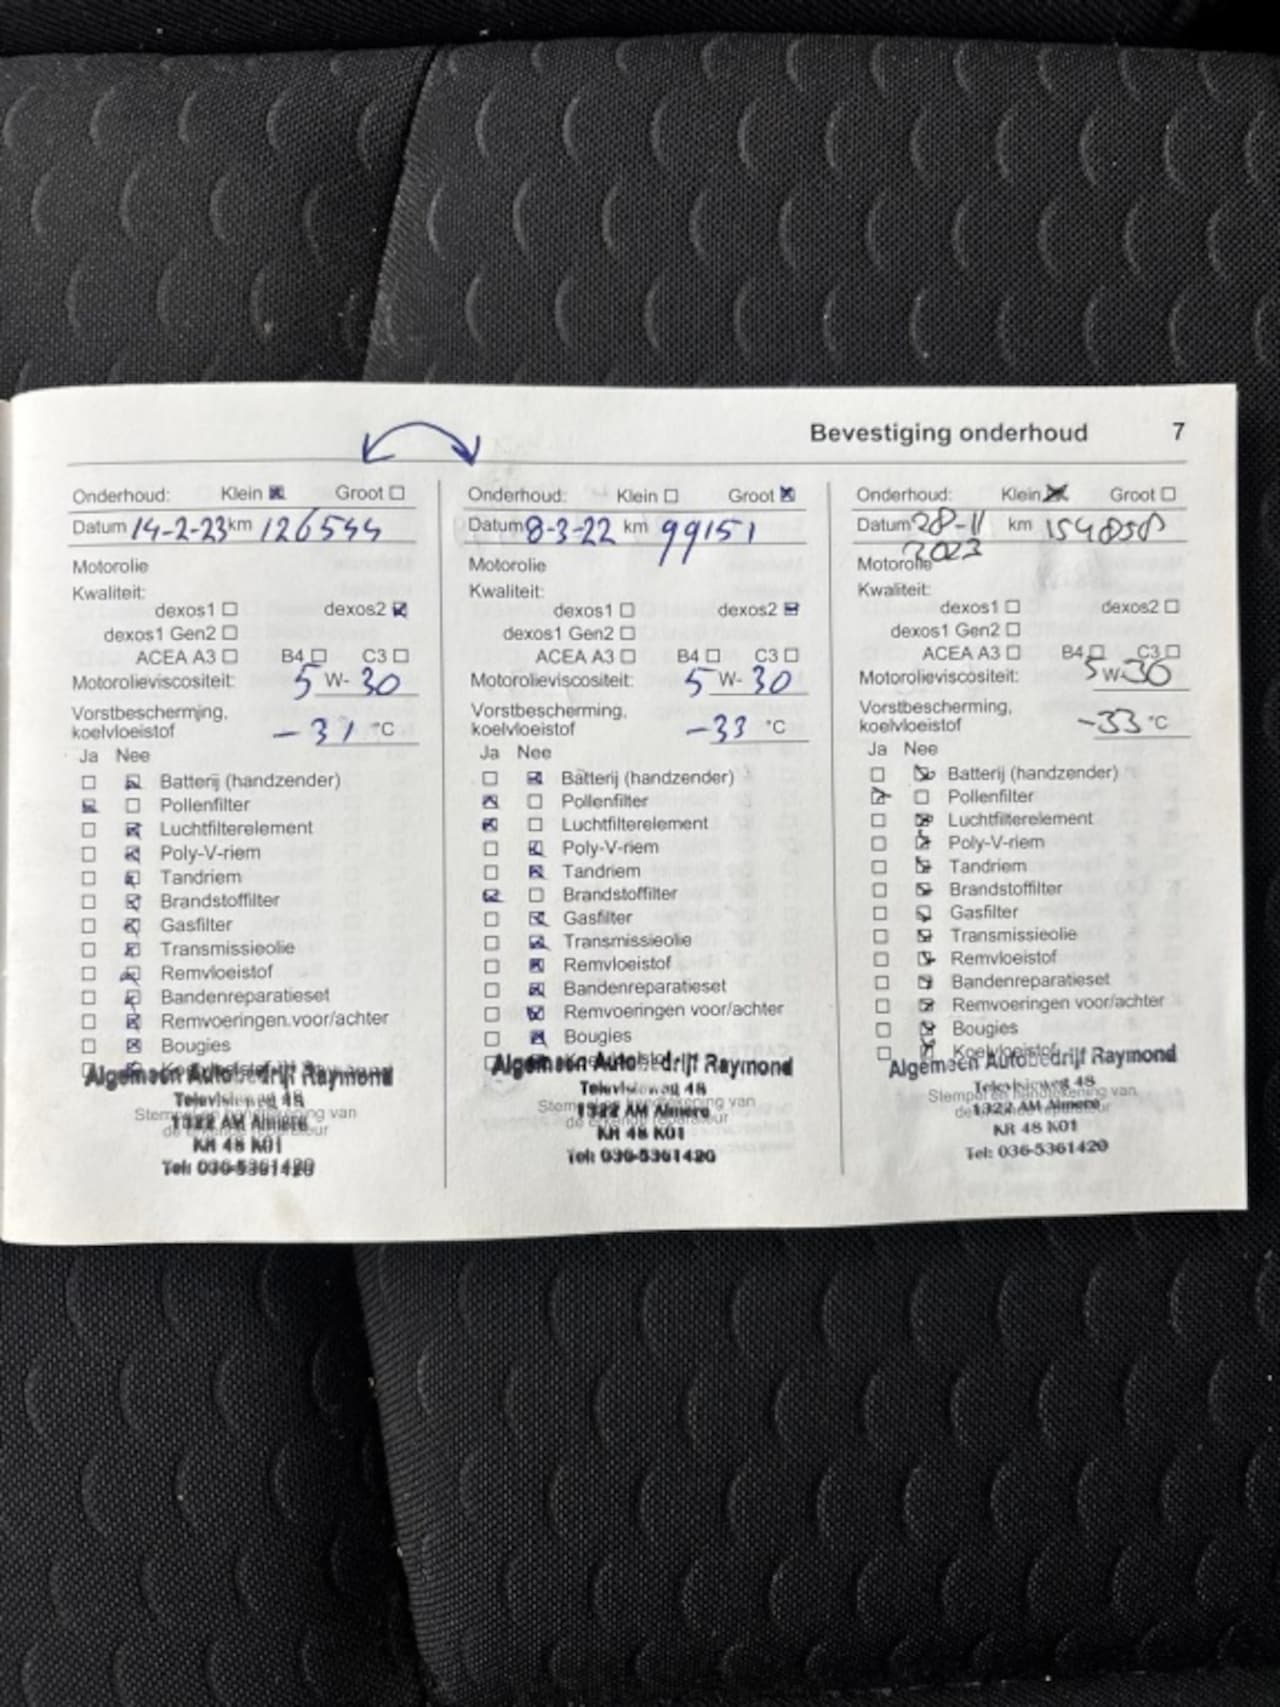 Bevestiging onderhoud 7
Onderhoud: Klein Groot
Datum 14-2-23 km 126544
Motorolie
Kwaliteit:
dexos1 dexos2
dexos1 Gen2
ACEA A3 B4 C3
Motorolieviscositeit: 5 W- 30
Vorstbescherming,
koelvloeistof -31 °C
Ja Nee
Batterij (handzender)
Pollenfilter
Luchtfilterelement
Poly-V-riem
Tandriem
Brandstoffilter
Gasfilter
Transmissieolie
Remvloeistof
Bandenreparatieset
Remvoeringen voor/achter
Bougies
Koelvloeistof
Algemeen Autobedrijf Raymond
Televisieweg 48
Stempel en handtekening van
1322 AM Almere
de erkende reparateur
KR 48 K01
Tel: 036-5361420
Onderhoud: Klein Groot
Datum 8-3-22 km 99151
Motorolie
Kwaliteit:
dexos1 dexos2
dexos1 Gen2
ACEA A3 B4 C3
Motorolieviscositeit: 5 W- 30
Vorstbescherming,
koelvloeistof -33 °C
Ja Nee
Batterij (handzender)
Pollenfilter
Luchtfilterelement
Poly-V-riem
Tandriem
Brandstoffilter
Gasfilter
Transmissieolie
Remvloeistof
Bandenreparatieset
Remvoeringen voor/achter
Bougies
Koelvloeistof
Algemeen Autobedrijf Raymond
Televisieweg 48
Stempel en handtekening van
1322 AM Almere
de erkende reparateur
KR 48 K01
Tel: 036-5361420
Onderhoud: Klein Groot
Datum 28-11 km 154858
2023
Motorolie
Kwaliteit:
dexos1 dexos2
dexos1 Gen2
ACEA A3 B4 C3
Motorolieviscositeit: 5 W- 30
Vorstbescherming,
koelvloeistof -33 °C
Ja Nee
Batterij (handzender)
Pollenfilter
Luchtfilterelement
Poly-V-riem
Tandriem
Brandstoffilter
Gasfilter
Transmissieolie
Remvloeistof
Bandenreparatieset
Remvoeringen voor/achter
Bougies
Koelvloeistof
Algemeen Autobedrijf Raymond
Televisieweg 48
Stempel en handtekening van
1322 AM Almere
de erkende reparateur
KR 48 K01
Tel: 036-5361420